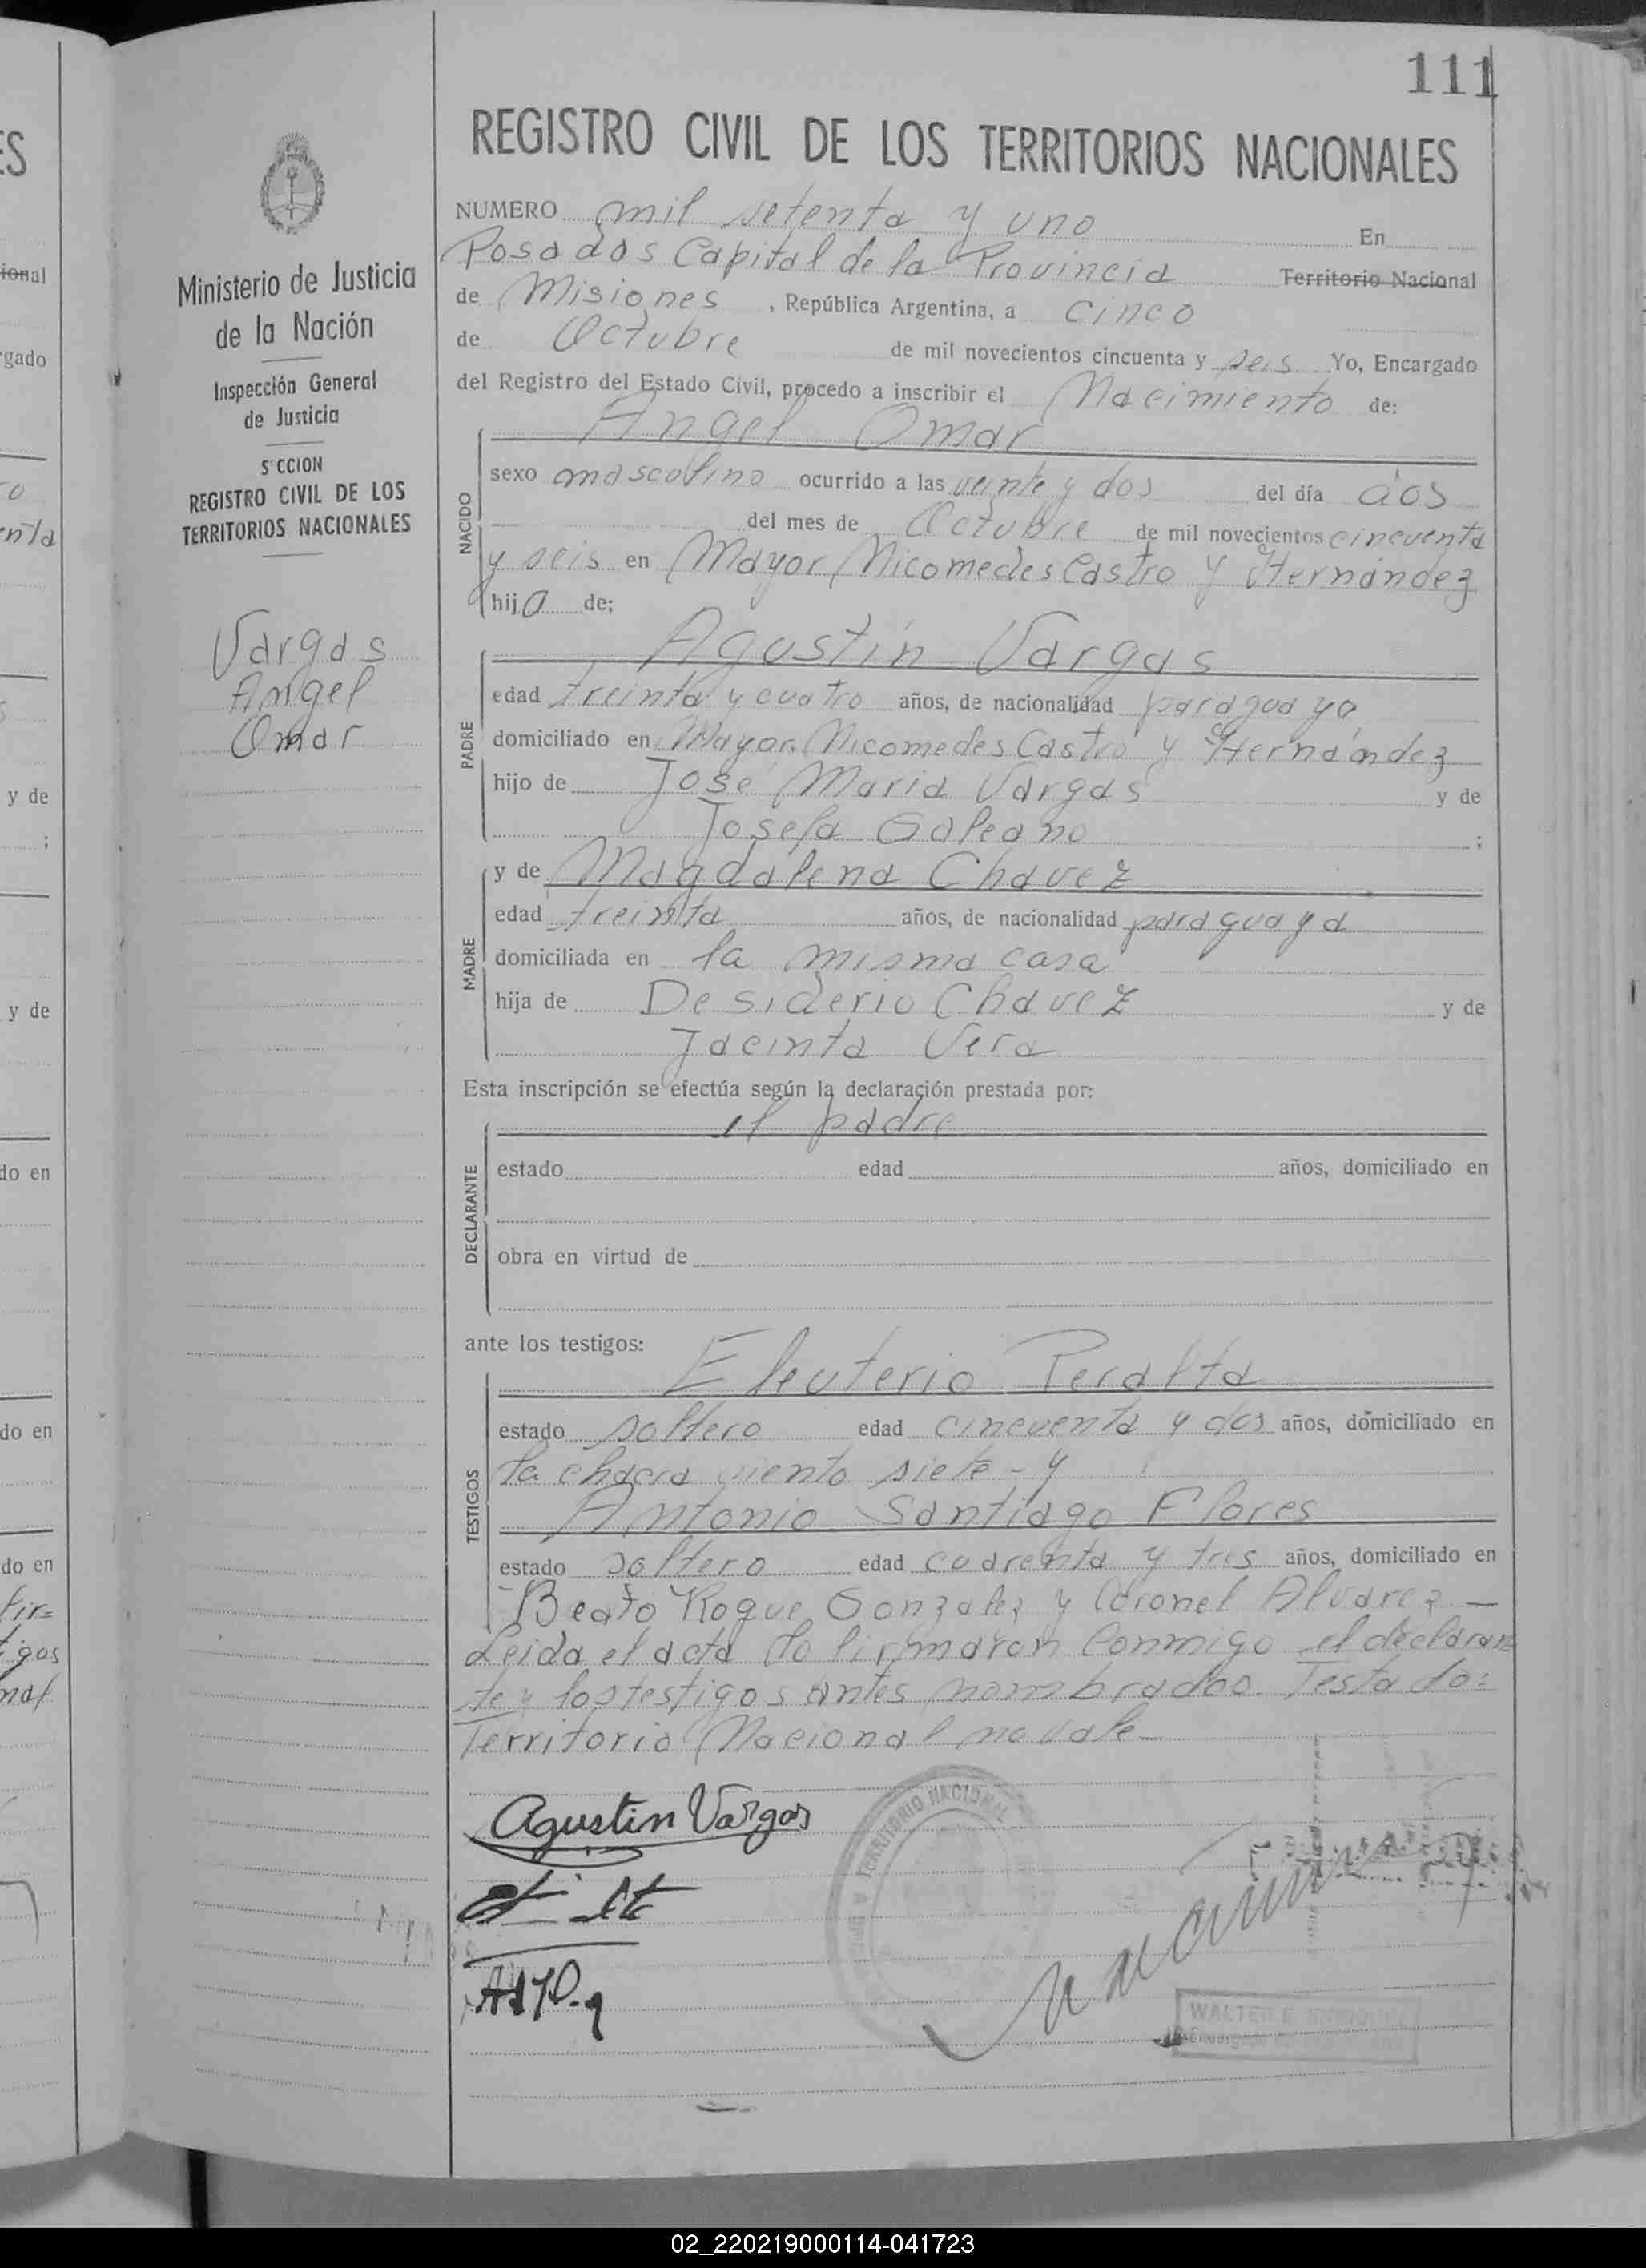 111
REGISTRO CIVIL DE LOS TERRITORIOS NACIONALES
Ministerio de Justicia
de la Nación
Inspección General
de Justicia
S CCION
REGISTRO CIVIL DE LOS
TERRITORIOS NACIONALES
Vargas
Angel
Omar
NUMERO mil setenta y uno En
Posadas Capital de la Provincia Territorio Nacional
de Misiones, República Argentina, a cinco
de Octubre de mil novecientos cincuenta y seis Yo, Encargado
del Registro del Estado Civil, procedo a inscribir el Nacimiento de:
NACIDO
Angel Omar
sexo masculino ocurrido a las veinte y dos del día dos
del mes de Octubre de mil novecientos cincuenta
y seis en Mayor Nicomedes Castro y Hernández
hijo de;
PADRE
Agustín Vargas
edad treinta y cuatro años, de nacionalidad paraguaya
domiciliado en Mayor Nicomedes Castro y Hernández
hijo de José Maria Vargas y de
Josefa Galeano ;
MADRE
y de Magdalena Chavez
edad treinta años, de nacionalidad paraguaya
domiciliada en la misma casa
hija de Desiderio Chavez y de
Jacinta Vera
Esta inscripción se efectúa según la declaración prestada por:
DECLARANTE
el padre
estado edad años, domiciliado en
obra en virtud de
ante los testigos:
TESTIGOS
Eleuterio Peralta
estado soltero edad cincuenta y dos años, domiciliado en
la chacra ciento siete - y
Antonio Santiago Flores
estado soltero edad cuarenta y tres años, domiciliado en
Beato Roque Gonzalez y Coronel Alvarez —
Leida el acta la firmaron conmigo el declaran
te y los testigos antes nombrados. Testado:
Territorio Nacional no vale —
Agustin Vargas
TERRITORIO NACIONAL
WALTER
02_220219000114-041723